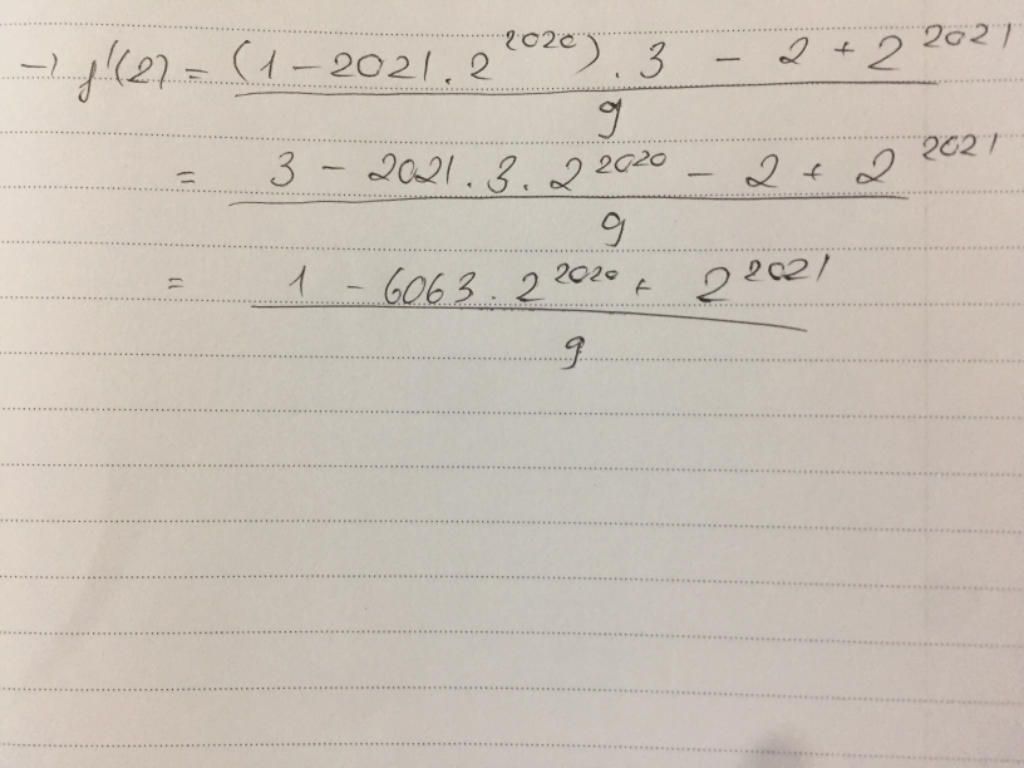 → f'(2) = (1 - 2021 . 2^2020) . 3 - 2 + 2^2021
9
= 3 - 2021 . 3 . 2^2020 - 2 + 2^2021
9
= 1 - 6063 . 2^2020 + 2^2021
9